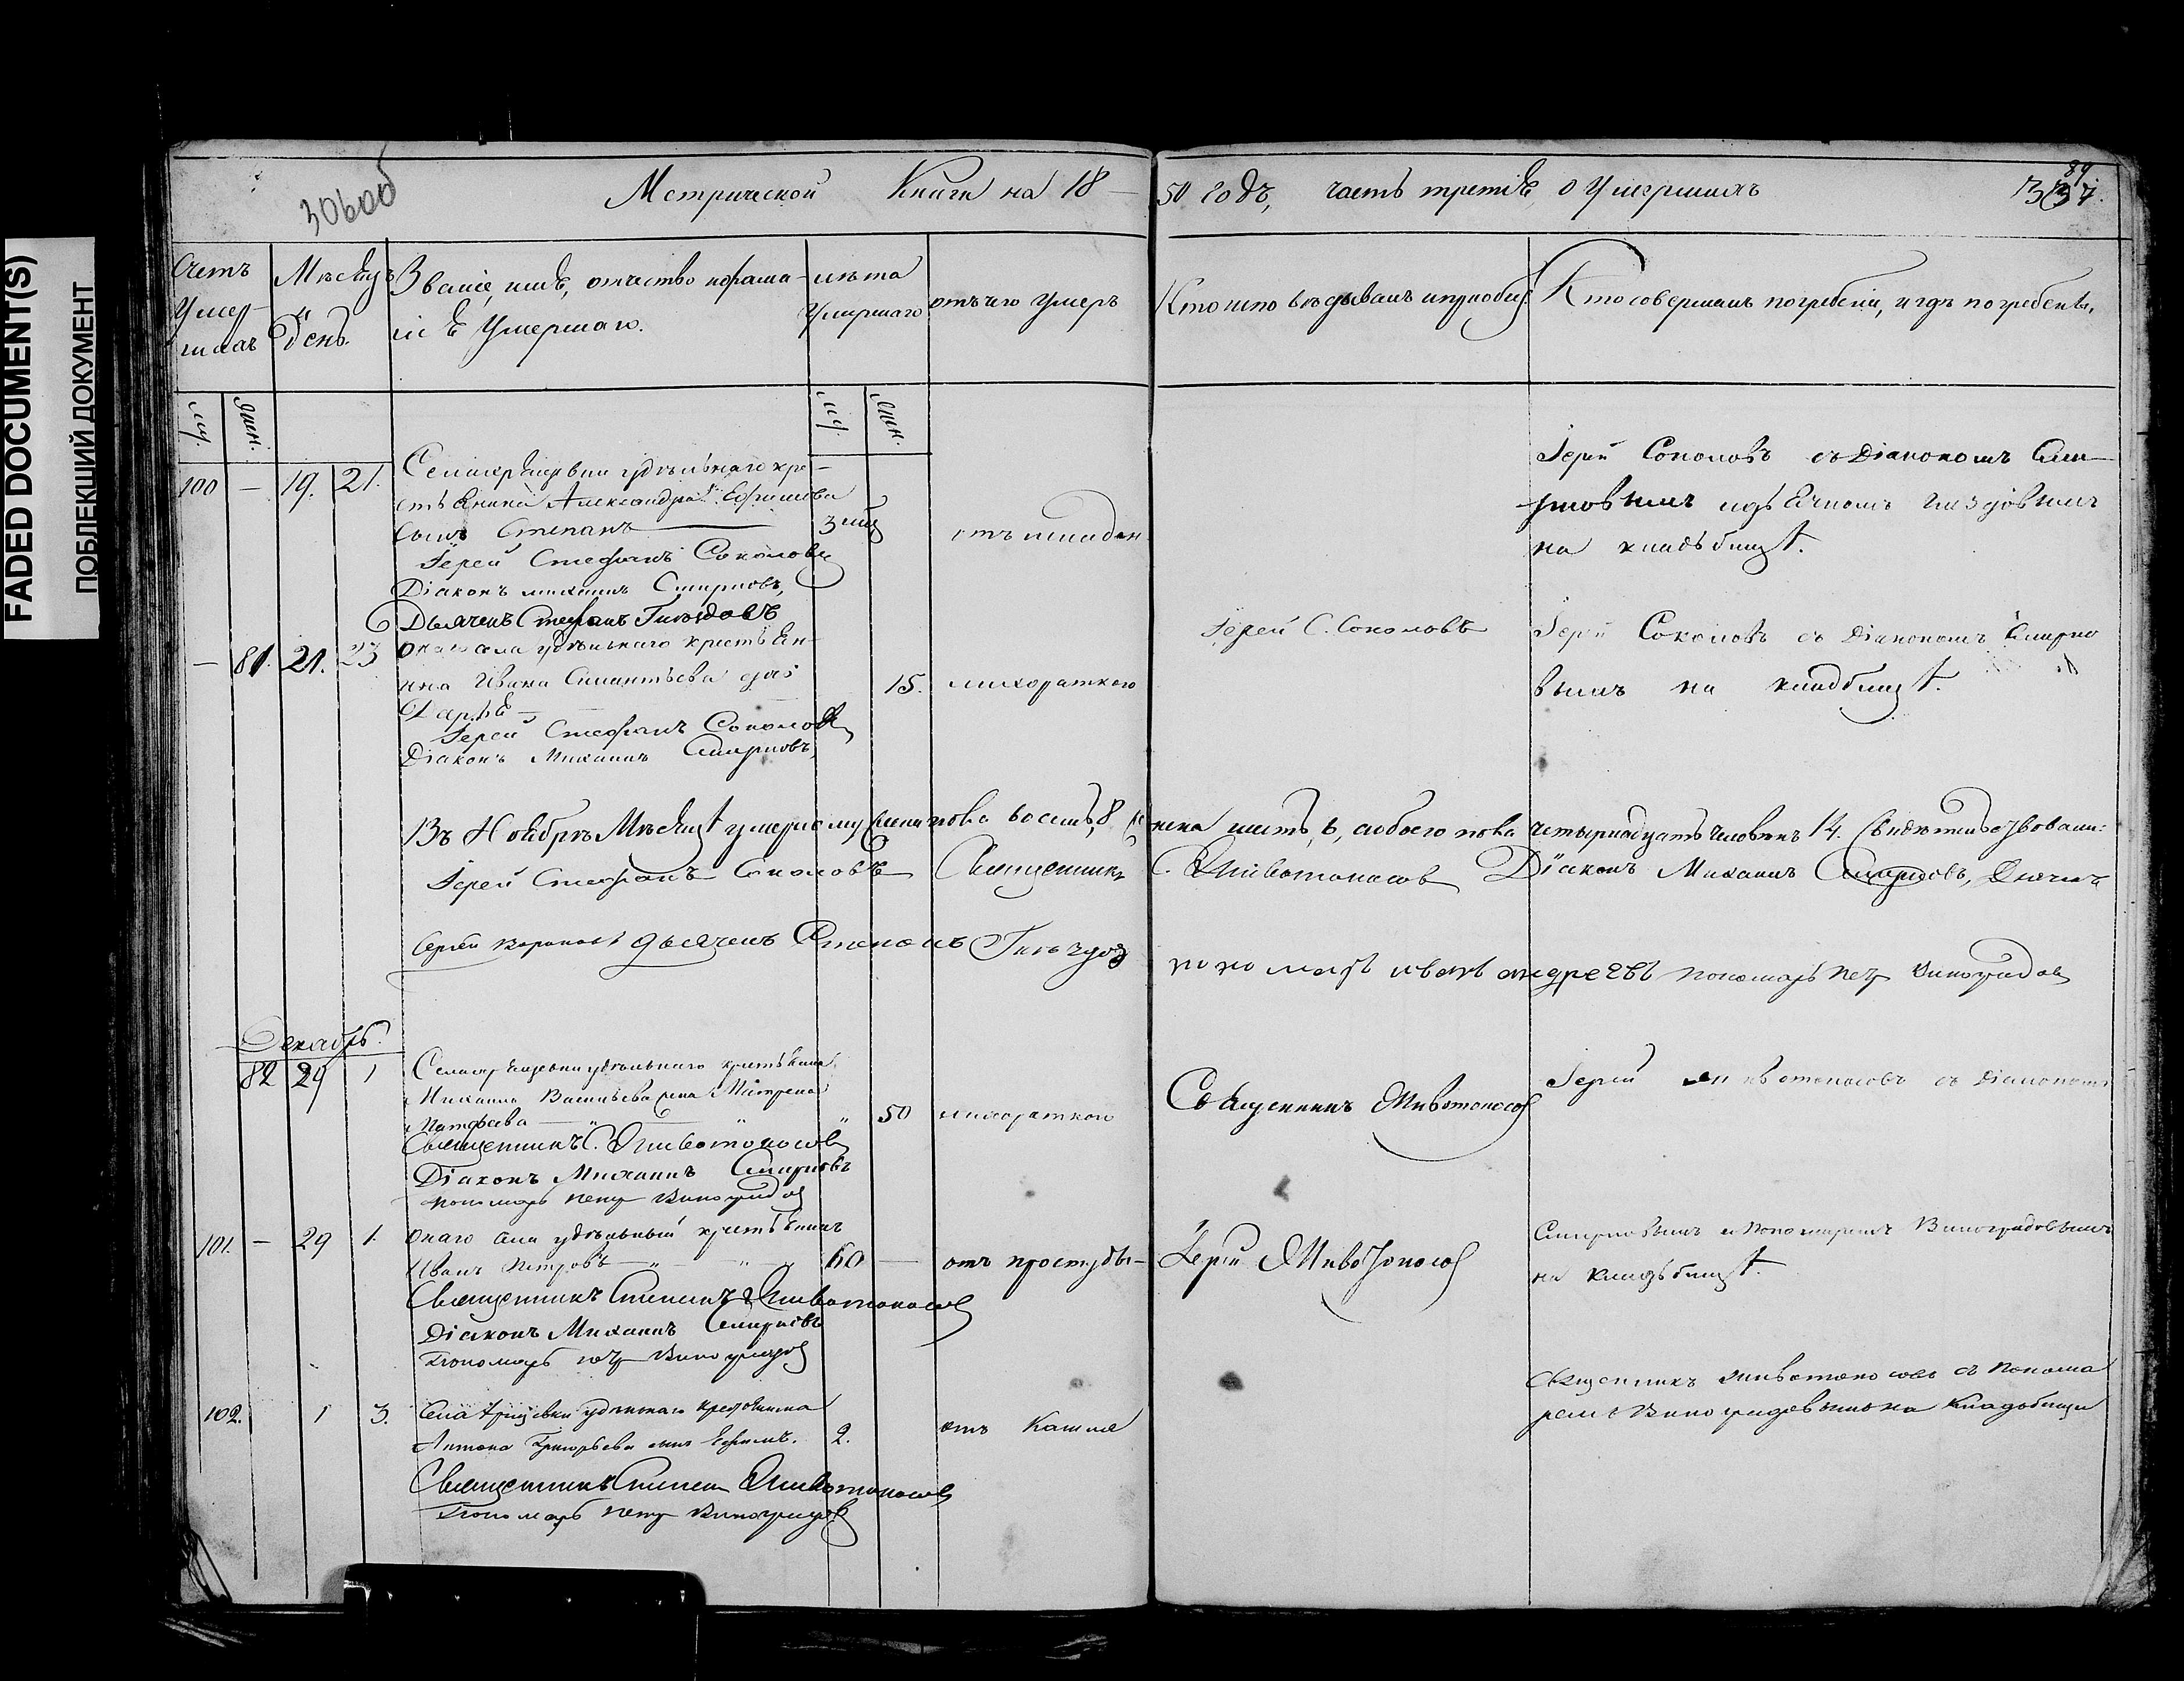 FADED DOCUMENT(S)
ПОБЛЕКШИЙ ДОКУМЕНТ
306об
89
Метрической Книги на 18 50 годъ, часть третья, о Умершихъ
337.
Счетъ Умер-шихъ
Мѣсяцъ День.
Званіе, имя, отчество и фами-
лія Умершаго.
лѣта Умершаго
отъ чего умеръ
Кто исповѣдывалъ и пріобщ
Кто совершалъ погребеніе, и гдѣ погребены,
му. жен.
му. жен.
100 — 19. 21.
Села удѣльнаго кре-
стьянина Александра Ефимова
сынъ Степанъ 3 мѣ отъ младен
Іерей Стефанъ Соколовъ
Діаконъ Михаилъ Смирновъ,
Дьячекъ Стефанъ Гнѣздовъ
Іерей Соколовъ съ Діакономъ Сми-
рновымъ и дьячкомъ Гнѣздовымъ
на кладбищѣ.
— 81. 21. 23
Онаго села удѣльнаго крестьян-
ина Ивана Силантьева дочь
Дарья 15. лихорадкою
Іерей Стефанъ Соколовъ
Діаконъ Михаилъ Смирновъ,
Іерей С. Соколовъ
Іерей Соколовъ съ Діакономъ Смирно
вымъ на кладбищѣ.
Въ Ноябрѣ Мѣсяцѣ умерло мужеска пола восемь, 8, женска шесть, 6, обоего пола четырнадцать человѣкъ 14. Свидѣтельствовали:
Іерей Стефанъ Соколовъ Священникъ С. Животоносовъ Діаконъ Михаилъ Смирновъ, Дьячекъ
Сергѣй дьячекъ Степанъ Гнѣздов пономарь Иванъ Андреевъ пономарь Петр Виноградов
Декабрь.
82 29 1
Села удѣльнаго крестьянина
Михаила Васильева жена Матрена
50 лихорадкою
Священникъ С. Животоносовъ
Діаконъ Михаилъ Смирновъ
пономарь Петр Виноградов
Священникъ Животоносов
Іерей Животоносовъ съ Діакономъ
101. — 29 1.
Онаго села удѣльный крестьянинъ
Иванъ Петровъ 60 — отъ простуды
Священникъ Степанъ Животоносов
Діаконъ Михаилъ Смирновъ
Пономарь Петр Виноградов
Іерей Животоносов
Смирновымъ и Пономаремъ Виноградовымъ
на кладбищѣ.
102. 1 3.
Села удѣльнаго крестьянина
Антона Григорьева сынъ Ефимъ. 2. отъ Кашля
Священникъ Степан Животоносов
Пономарь Петр Виноградов
Священникъ Животоносовъ съ Понома
ремъ Виноградовымъ на Кладбищѣ